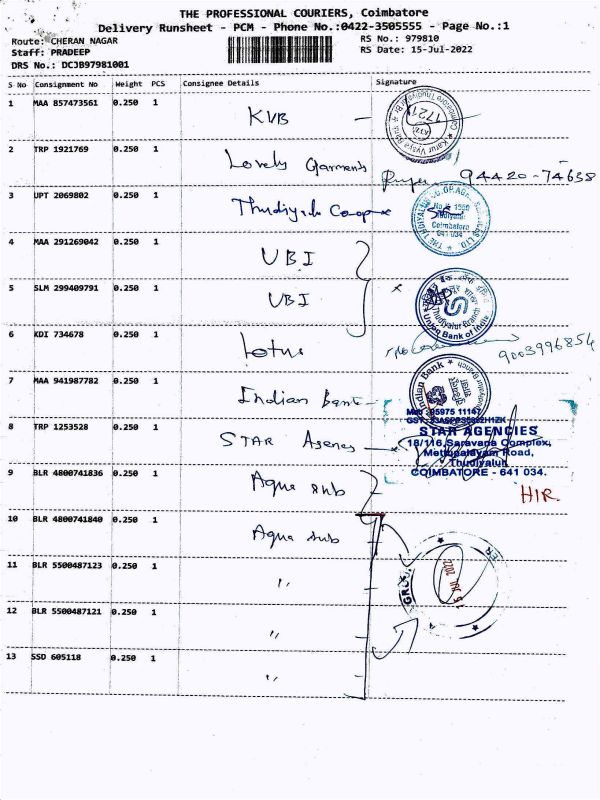 THE PROFESSIONAL COURIERS, Coimbatore
Delivery Runsheet - PCM - Phone No.:0422-3505555 - Page No.:1
Route: CHERAN NAGAR
RS No.: 979810
Staff: PRADEEP
RS Date: 15-Jul-2022
DRS No.: DCJB97981001
S No Consignment No Weight PCS Consignee Details Signature
1 MAA 857473561 0.250 1 KVB
1721
2 TRP 1921769 0.250 1 Lovely Garments 94420-74638
3 UPT 2069802 0.250 1
No.K 1550
Coimbatore
641 034
4 MAA 291269042 0.250 1 UBI
5 SLM 299409791 0.250 1 UBI
Thudiyalur Branch
Union Bank of India
6 KDI 734678 0.250 1 Lotus 9003996854
7 MAA 941987782 0.250 1 Indian Bank
Indian Bank
8 TRP 1253528 0.250 1 STAR Agency
STAR AGENCIES
18/116, Saravana Complex,
Mettupalayam Road,
Thudiyalur
COIMBATORE - 641 034.
9 BLR 4800741836 0.250 1 Aqua sub
HIR.
10 BLR 4800741840 0.250 1 Aqua sub
11 BLR 5500487123 0.250 1 "
15 JUL 2022
12 BLR 5500487121 0.250 1 "
13 SSD 605118 0.250 1 "